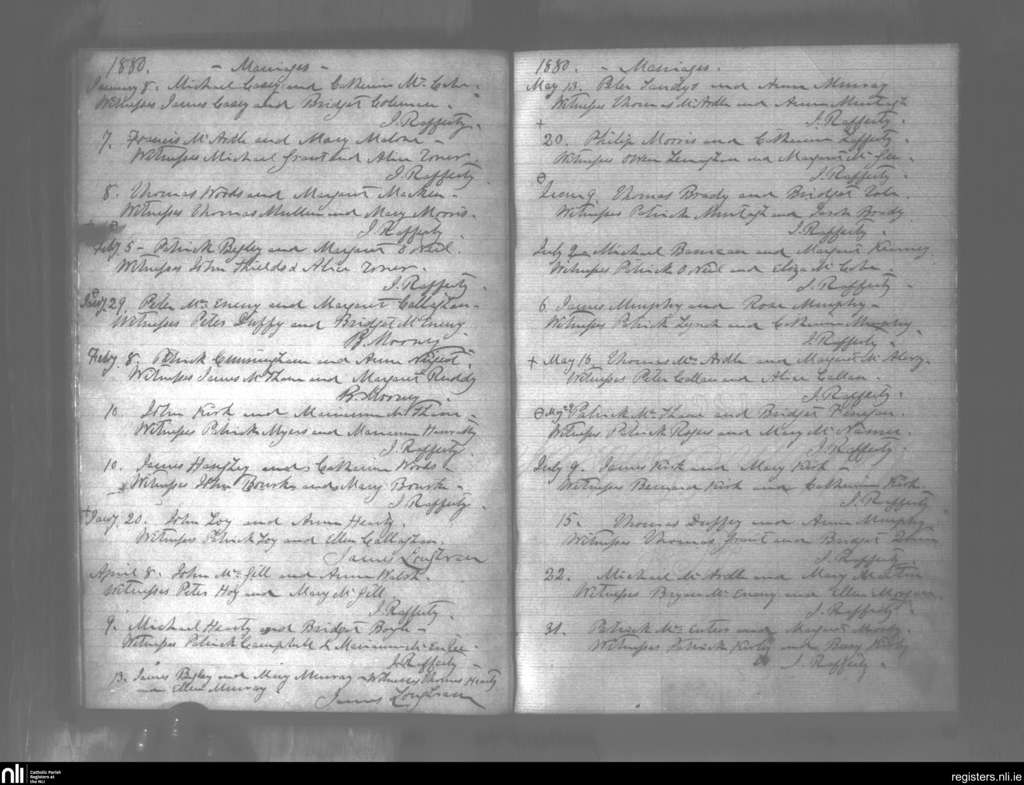 1880. - Marriages -
January 8. Michael Casey and Catherine Mc Cabe
Witnesses James Casey and Bridget Coleman.
J. Rafferty.
7. Francis McArdle and Mary Malone
Witnesses Michael Grant and Alice Toner.
J. Rafferty
8. Thomas Woods and Margaret Macken
Witnesses Thomas Mullen and Mary Morris.
J. Rafferty
Feby 5 - Patrick Begley and Margaret O'Neil.
Witnesses John Shields & Alice Toner.
J. Rafferty
Jany 29. Peter Mc Eneny and Margaret Callaghan
Witnesses Peter Duffy and Bridget McEneny.
Mooney
Feby 8. Patrick Cunningham and Anne
Witnesses James and Margaret Ruddy
Mooney
10. John Kirk and
Witnesses Patrick Myers and
J. Rafferty.
10. James and Catherine Woods
Witnesses John Bourke and Mary Bourke
J. Rafferty.
Jany 20. John Loy and Anne Hearty.
Witnesses Patrick Loy and Ellen Callaghan.
James Loughran
April 8. John McGill and Anne Walsh.
Witnesses Peter Hoy and Mary McGill
J. Rafferty
9. Michael Hearty and Bridget Boyle
Witnesses Patrick Campbell &
J. Rafferty
13. James Begley and Mary Murray - Witnesses Thomas Hearty
and Ellen Murray
James Loughran
1880. - Marriages.
May 13. Peter and Anne Murray
Witnesses Thomas McArdle and Anne Murtagh
J. Rafferty.
+
20. Philip Morris and Catherine Lafferty
Witnesses Owen and Margaret
J. Rafferty.
June 9. Thomas Brady and Bridget
Witnesses Patrick Murtagh and Brady
J. Rafferty.
July 2 Michael and Margaret Kearney
Witnesses Patrick O'Neil and Eliza McCabe
J. Rafferty
6. James Murphy and Rose Murphy
Witnesses Patrick Lynch and Catherine Murphy
J. Rafferty
+ May 13. Thomas Mc Ardle and Margaret
Witnesses Peter Callan and Alice Callan.
J. Rafferty.
Patrick and Bridget Finegan
Witnesses Patrick Rogers and Mary
J. Rafferty.
July 9. James Kirk and Mary Kirk
Witnesses Bernard Kirk and Catherine Kirk.
J. Rafferty
15. Thomas Duffey and Anne Murphy
Witnesses Thomas Grant and Bridget
J. Rafferty
22. Michael McArdle and Mary Martin
Witnesses Bryan Mc Eneny and Ellen Morgan.
J. Rafferty
31. Patrick and Margaret
Witnesses Patrick Kirby and Kirby
J. Rafferty
nli Catholic Parish
Registers at
the NLI
registers.nli.ie